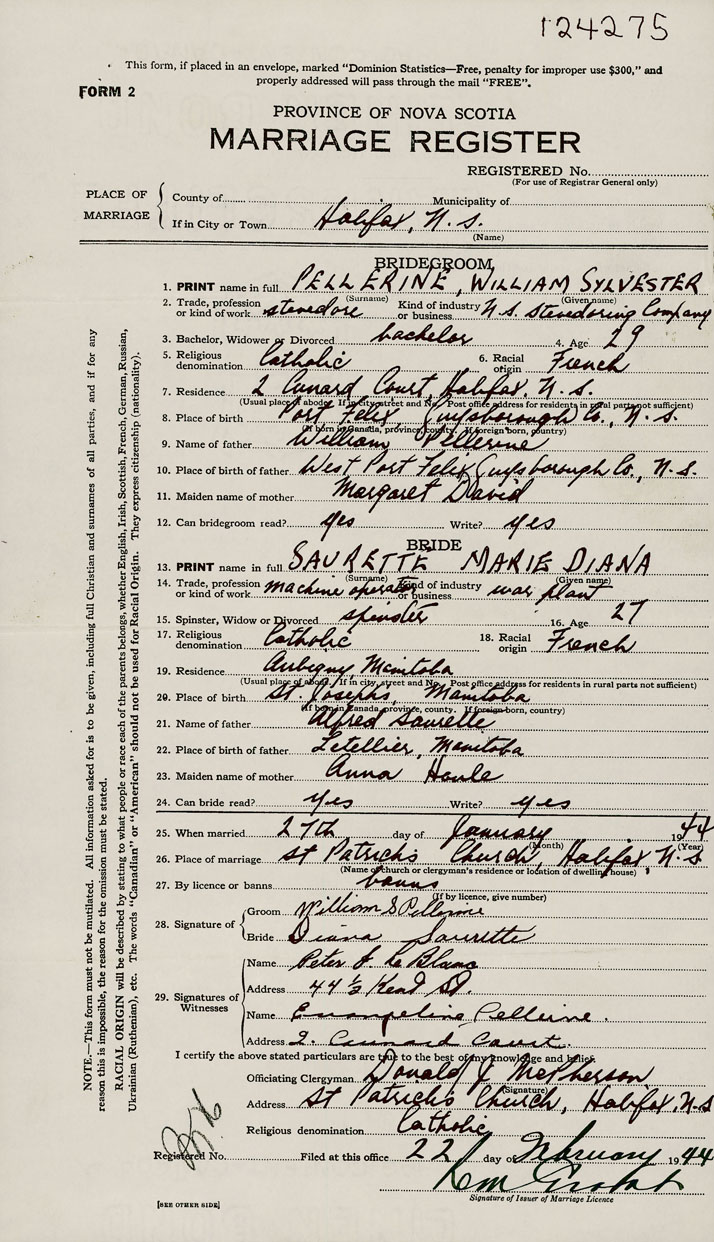 124275
This form, if placed in an envelope, marked "Dominion Statistics—Free, penalty for improper use $300," and
properly addressed will pass through the mail "FREE".
FORM 2
PROVINCE OF NOVA SCOTIA
MARRIAGE REGISTER
REGISTERED No.
(For use of Registrar General only)
PLACE OF MARRIAGE
County of Municipality of
If in City or Town Halifax, N. S.
(Name)
BRIDEGROOM
1. PRINT name in full PELLERINE, WILLIAM SYLVESTER
(Surname) (Given name)
2. Trade, profession or kind of work stevedore Kind of industry or business N.S. Stevedoring Company
3. Bachelor, Widower or Divorced bachelor 4. Age 29
5. Religious denomination Catholic 6. Racial origin French
7. Residence 2 Cunard Court, Halifax, N. S.
(Usual place of abode. If in city street and No. Post office address for residents in rural parts not sufficient)
8. Place of birth Port Felix, Guysborough Co., N. S.
(If born in Canada, province, county. If foreign born, country)
9. Name of father William Pellerine
10. Place of birth of father West Port Felix Guysborough Co., N. S.
11. Maiden name of mother Margaret David
12. Can bridegroom read? yes Write? yes
BRIDE
13. PRINT name in full SAURETTE MARIE DIANA
(Surname) (Given name)
14. Trade, profession or kind of work machine operator Kind of industry or business war plant
15. Spinster, Widow or Divorced spinster 16. Age 27
17. Religious denomination Catholic 18. Racial origin French
19. Residence Aubigny Manitoba
(Usual place of abode. If in city street and No. Post office address for residents in rural parts not sufficient)
20. Place of birth St. Josephs, Manitoba
(If born in Canada, province, county. If foreign born, country)
21. Name of father Alfred Saurette
22. Place of birth of father Letellier, Manitoba
23. Maiden name of mother Anna Houle
24. Can bride read? yes Write? yes
25. When married 27th day of January 1944
(Month) (Year)
26. Place of marriage St Patrick's Church, Halifax N.S
(Name of church or clergyman's residence or location of dwelling house)
27. By licence or banns banns
(If by licence, give number)
28. Signature of
Groom William S Pellerine
Bride Diana Saurette
29. Signatures of Witnesses
Name Peter J. Le Blanc
Address 44 ½ Kent St.
Name Evangeline Pellerine.
Address 2. Cunnard Court.
I certify the above stated particulars are true to the best of my knowledge and belief.
Officiating Clergyman Donald J McPherson
(Signature)
Address St Patrick's Church, Halifax, N.S
Religious denomination Catholic
Registered No. Filed at this office 22 day of February 1944
Signature of Issuer of Marriage Licence
[SEE OTHER SIDE]
NOTE.—This form must not be mutilated. All information asked for is to be given, including full Christian and surnames of all parties, and if for any
reason this is impossible, the reason for the omission must be stated.
RACIAL ORIGIN will be described by stating to what people or race each of the parents belongs, whether English, Irish, Scottish, French, German, Russian,
Ukrainian (Ruthenian), etc. The words "Canadian" or "American" should not be used for Racial Origin. They express citizenship (nationality).